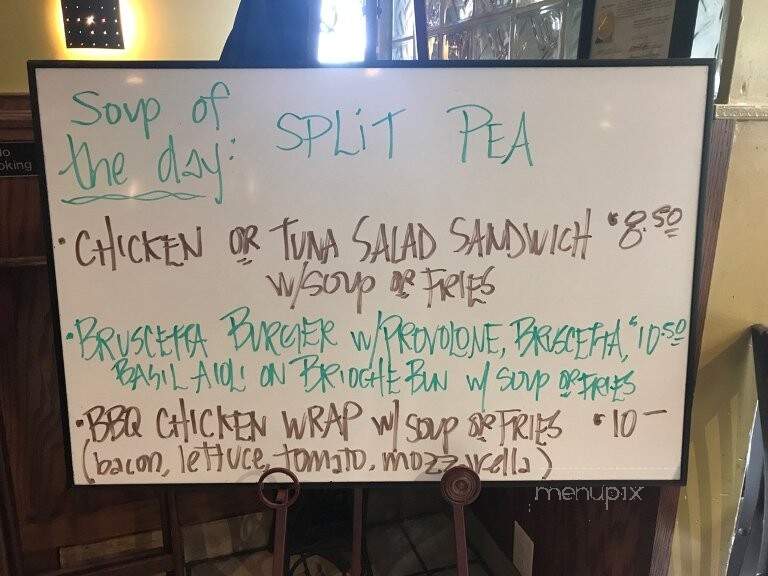 No
oking
Soup of
the day: SPLIT PEA
• CHICKEN OR TUNA SALAD SANDWICH $8.50
w/SOUP OR FRIES
• BRUSCETTA BURGER w/PROVOLONE, BRUSCETTA, $10.50
BASIL AIOLI ON BRIOCHE BUN w/ SOUP OR FRIES
• BBQ CHICKEN WRAP w/ SOUP OR FRIES $10—
(bacon, lettuce, tomato, mozzarella)
menupix